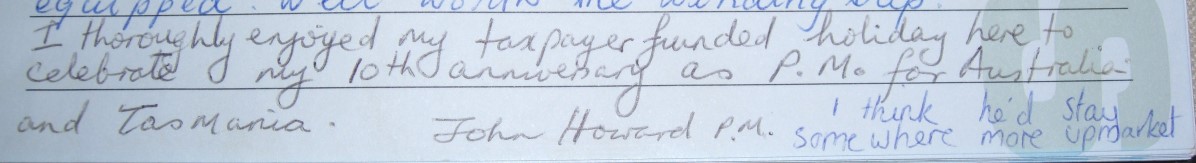 equipped. Well worth the winding up.
I thoroughly enjoyed my taxpayer funded holiday here to
celebrate my 10th anniversary as P.M. for Australia
and Tasmania. John Howard P.M.
I think he'd stay
somewhere more upmarket